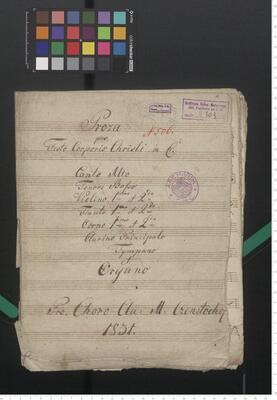 Proza
pro
N. 506.
Festo Corporis Christi in C.
Canto Alto
Tenore Basso
Violino 1mo et 2do
Flauto 1mo et 2do
Corno 1mo et 2do
Clarino Principale
Tympano
et
Organo
Pro Choro Cla: M. Czenstochov:
1831.